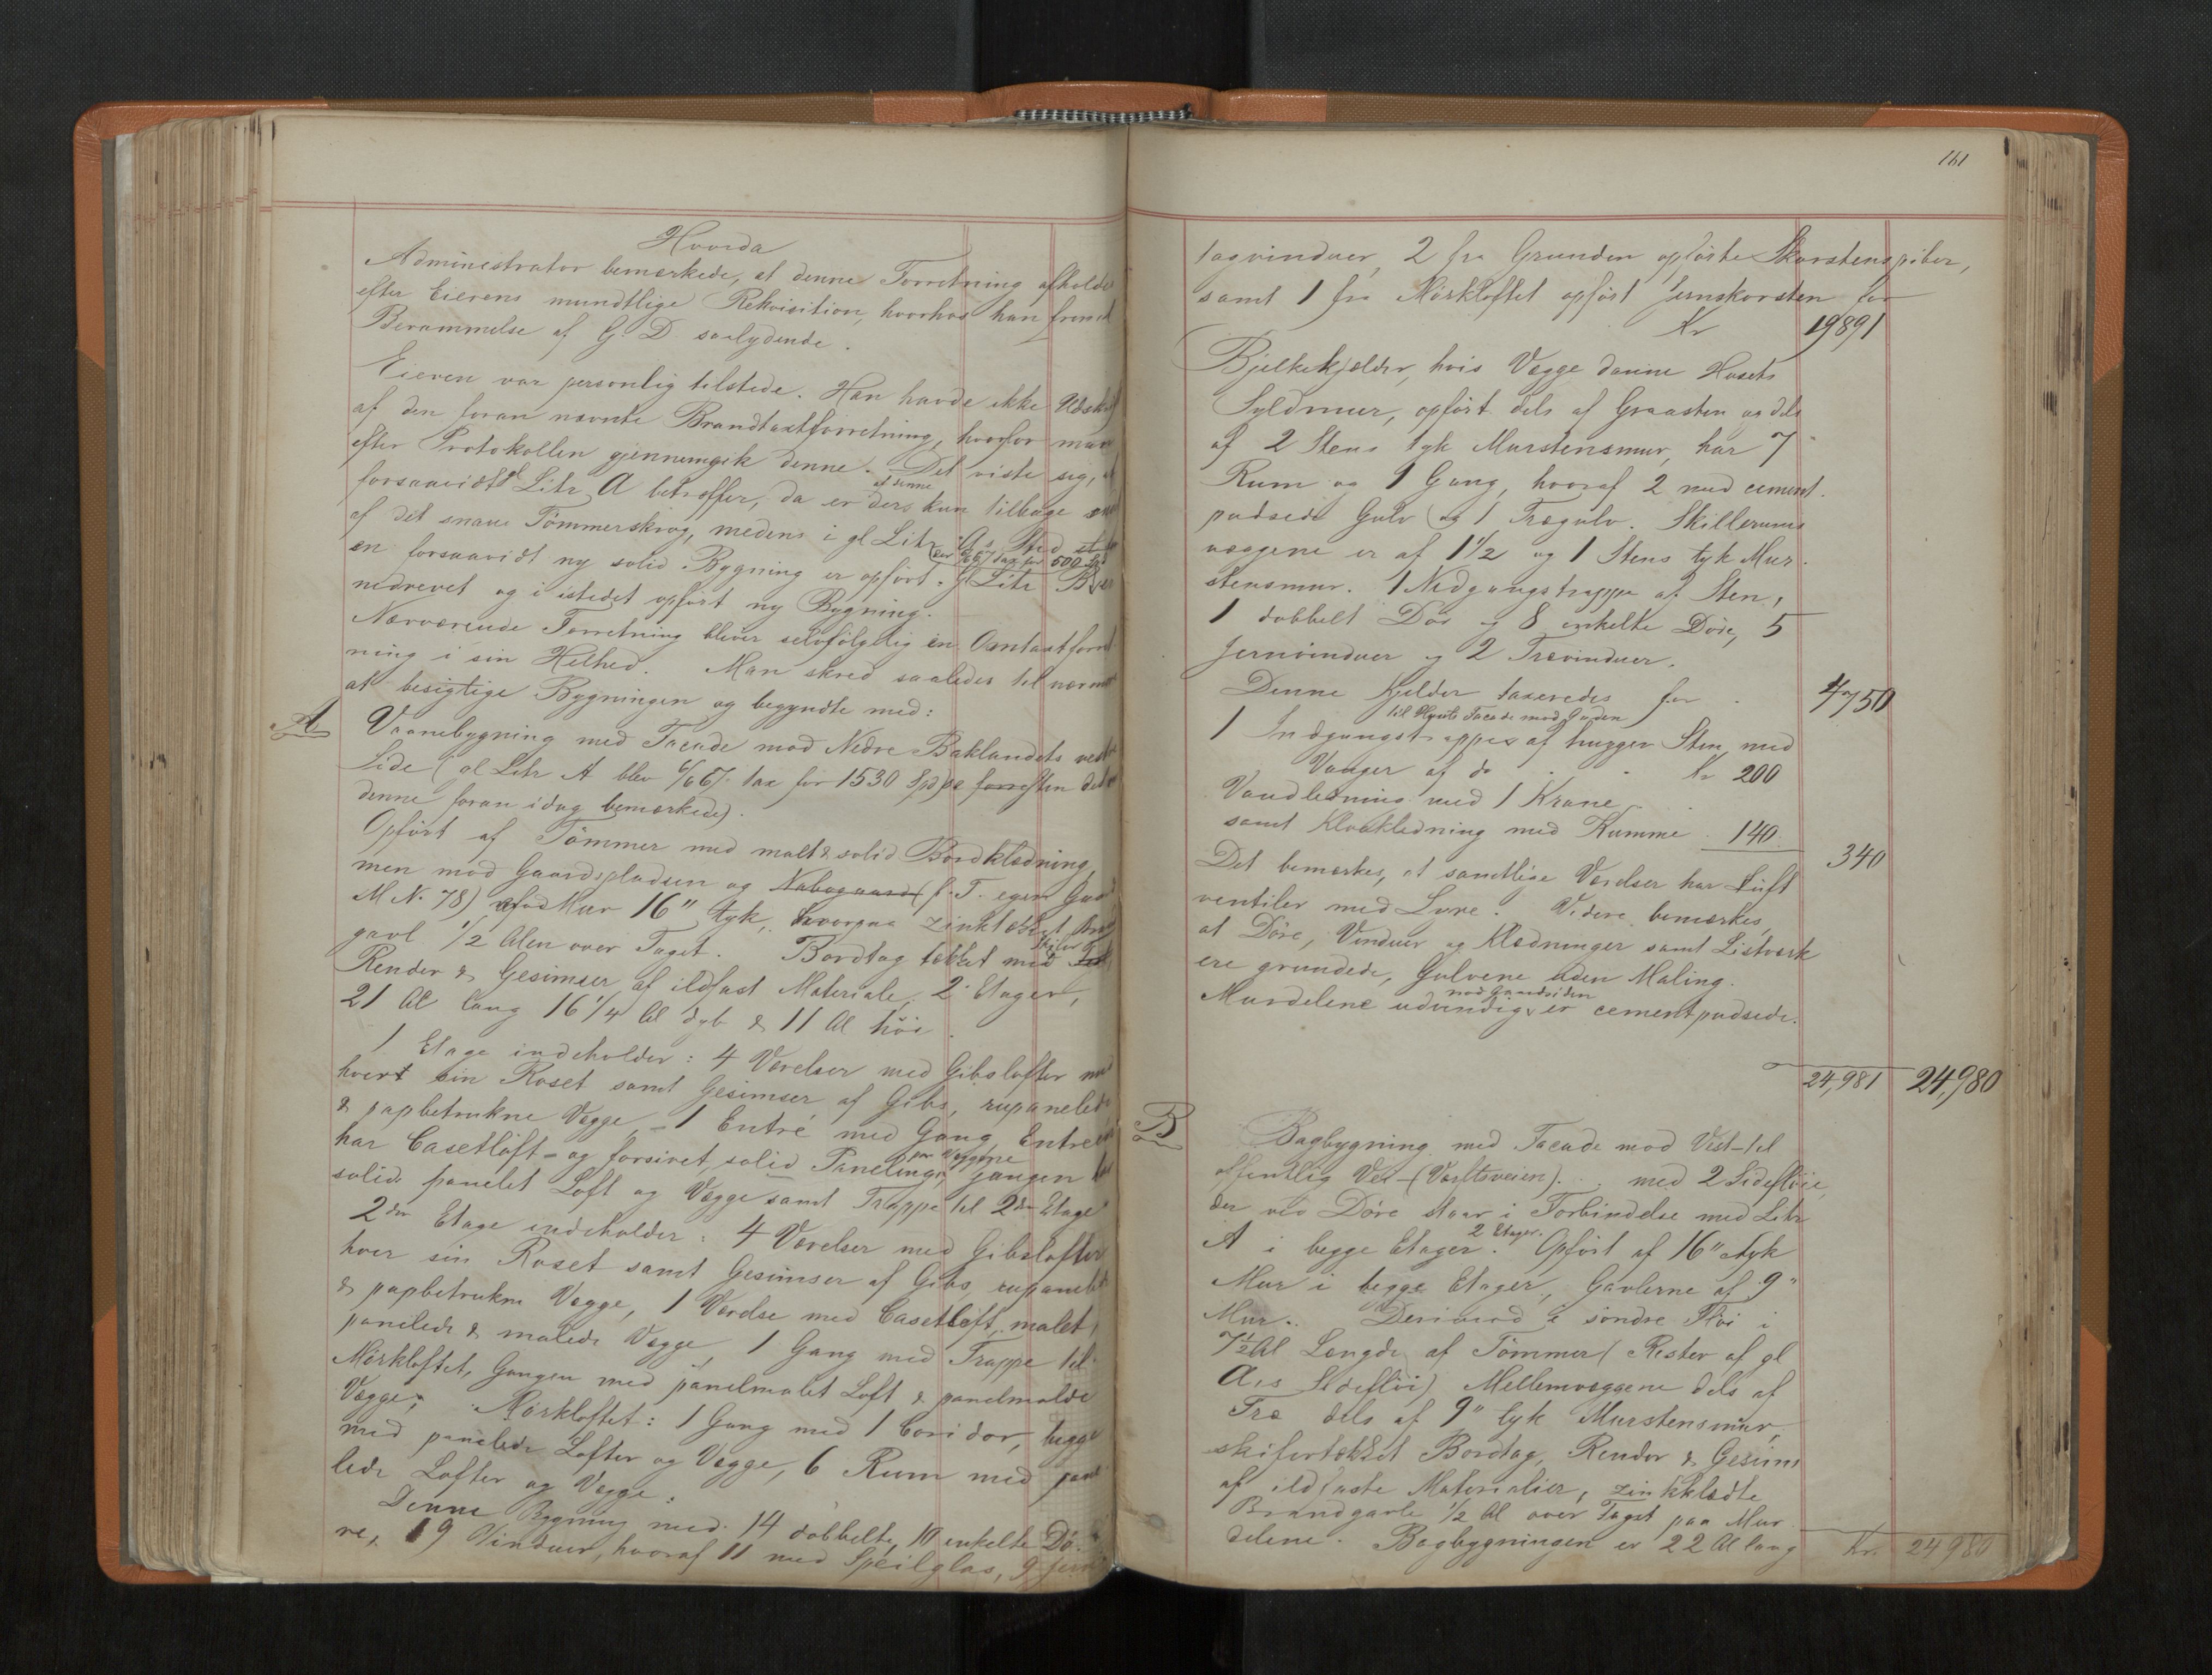 Hvorda
Administrator bemærkede, at denne Forretning afholdes
efter Eierens mundtlige Rekvisition, hvorhos han freml
Berammelse af G. D. saalydende.
Eieren var personlig tilstede. Han havde ikke Udskrift
af den foran nævnte Brandtaxtforretning, hvorfor man
efter Protokollen gjennemgik denne. Det viste sig, at
forsaavidt gl Litr A betræffer, da er ders kun tilbage
af denne
af det Tømmerskrog, medens i gl Litr A,s Sted
en forsaavidt ny solid Bygning er opført. gl Litr B er
(er 6/67 tax for 500 Spd
nedrevet og i istedet opført ny Bygning.
Nærværende Forretning bliver selvfølgelig en Omtaxtforret
ning i sin Helhed. Man skred saaledes til nærmere
at besigtige Bygningen og begyndte med:
A Vaanebygning med Facade mod Nedre Baklandets vestre
Side (gl Litr A blev 6/67 tax for 1530 Spd
denne foran idag bemærkede).
Opført af Tømmer med malt & solid Bordklædning,
men mod Gaardspladsen og Nabogaard (f. T. egen Gaard
M N. 78) af Mur 16" tyk, hvorpaa zinktækket Brand
gavl 1/2 Alen over Taget. Bordtag tækket med Skifer
Render & Gesimser af ildfast Materiale, 2 Etager,
21 Al lang 16 1/4 Al dyb & 11 Al høi.
1 Etage indeholder: 4 Værelser med Gibslofter med
hvert sin Roset samt Gesimser af Gibs, rupanelede
& papbetrukne Vægge, – 1 Entré med Gang, Entreen
har Casetløft – og forsiret, solid Paneling, Gangen har
paa Væggene
solid panelet Loft og Vægge samt Trappe til 2den Etage
2den Etage indeholder: 4 Værelser med Gibslofter
hver sin Roset samt Gesimser af Gibs, rupanelede
& papbetrukne Vægge, 1 Værelse med Casetløft, malet,
panelede & malede Vægge, 1 Gang med Trappe til
Mørkloftet, Gangen med panelmalet Loft & panelmalde
Vægge; Mørkloftet: 1 Gang med 1 Coridor, begge
med panelede Lofter og Vægge, 6 Rum med pane
lede Lofter og Vægge.
Denne Bygning med 14 dobbelte, 10 enkelte Dø-
re, 19 Vinduer, hvoraf 11 med Speilglas, 9 Jern
161
tagvinduer, 2 fra Grunden opførte Skorstenspiber,
samt 1 fra Mørkloftet opført Jernskorsten for
Kr 19891
Bjelkekjælder, hvis Vægge danne Husets
Syldmur, opført dels af Graasten og dels
af 2 Stens tyk Murstensmur, har 7
Rum og 1 Gang, hvoraf 2 med cement-
pudsede Gulv og 1 Trægulv. Skillerums
væggene er af 1 1/2 og 1 Stens tyk Mur-
stensmur. 1 Nedgangstrappe af Sten,
1 dobbelt Dør og 8 enkelte Døre, 5
Jernvinduer og 2 Trævinduer.
Denne Kjelder taxeredes for 4750
til Husets Facade mod Gaden
1 Indgangstrappe af huggen Sten med
Vanger af do Kr 200
Vandledning med 1 Krane
samt Kloakledning med Kumme 140
340
Det bemærkes, at samtlige Værelser har Luft
ventiler med Snore. Videre bemærkes,
at Døre, Vinduer og Klædninger samt Listværk
ere grundede, Gulvene uden Maling.
mod Gaardsiden
Murdelene udvendig er cementpudsede.
24,981 24,980
B Bagbygning med Facade mod Vest til
offentlig Vei – med 2 Sidefløie,
der ved Døre staar i Forbindelse med Litr
2 Etager.
A i begge Etager. Opført af 16" tyk
Mur i begge Etager, Gavlerne af 9"
Mur. Derimod i søndre Fløi i
7 1/2 Al Længde af Tømmer (Rester af gl
A,s Sidefløi) Mellemvæggene dels af
Træ dels af 9" tyk Murstensmur,
skifertækket Bordtag, Render & Gesims
af ildfaste Materialier, zinkklædte
Brandgavle 1/2 Al over Taget paa Mur
delene. Bagbygningen er 22 Al lang
Kr. 24980